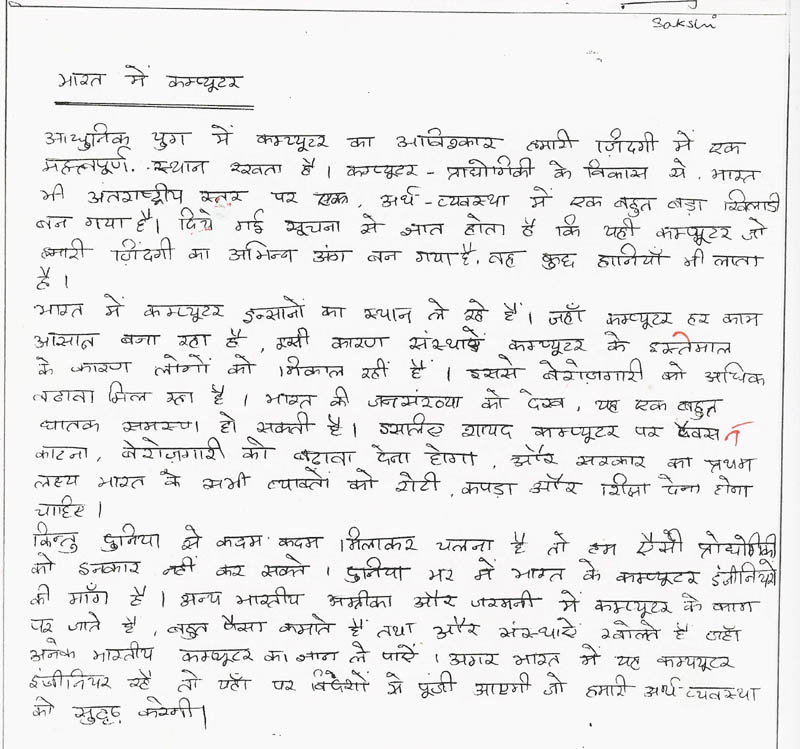 Sakshi
भारत में कम्प्यूटर
आधुनिक युग में कम्प्यूटर का आविश्कार हमारी ज़िंदगी में एक
महत्त्वपूर्ण स्थान रखता है। कम्प्यूटर - प्रायोगिकी के विकास से, भारत
भी अंतराष्ट्रीय स्तर पर एक, अर्थ-व्यवस्था में एक बहुत बड़ा खिलाड़ी
बन गया है। दिये गई सूचना से ज्ञात होता है कि यही कम्प्यूटर जो
हमारी ज़िंदगी का अभिन्न अंग बन गया है, वह कुछ हानियाँ भी लाता
है।
भारत में कम्प्यूटर इन्सानों का स्थान ले रहे हैं। जहाँ कम्प्यूटर हर काम
आसान बना रहा है, इसी कारण संस्थाएँ कम्प्यूटर के इस्तेमाल
के कारण लोगों को निकाल रहीं हैं। इससे बेरोज़गारी को अधिक
बढावा मिल रहा है। भारत की जनसंख्या को देख, यह एक बहुत
घातक समस्या हो सकती है। इसलिए शायद कम्प्यूटर पर टैक्स न
काटना, बेरोज़गारी को बढावा देना होगा, और सरकार का प्रथम
लक्ष्य भारत के सभी व्यक्तों को रोटी, कपड़ा और शिक्षा देना होना
चाहिए।
किन्तु दुनिया से कदम कदम मिलाकर चलना है तो हम ऐसी प्रोद्योगिकी
को इनकार नहीं कर सकते। दुनिया भर में भारत के कम्प्यूटर इंजीनियरों
की माँग है। अन्य भारतीय अम्रीका और जरमनी में कम्प्यूटर के काम
पर जाते है, बहुत पैसा कमाते हैं तथा और संस्थाऐं खोलते है जहाँ
अनेक भारतीय कम्प्यूटर का ज्ञान ले पाऐं। अगर भारत में यह कम्प्यूटर
इंजीनियर रहें तो यहाँ पर विदेशों से पूंजी आएगी जो हमारी अर्थ-व्यवस्था
को सुदृढ़ करेगी।